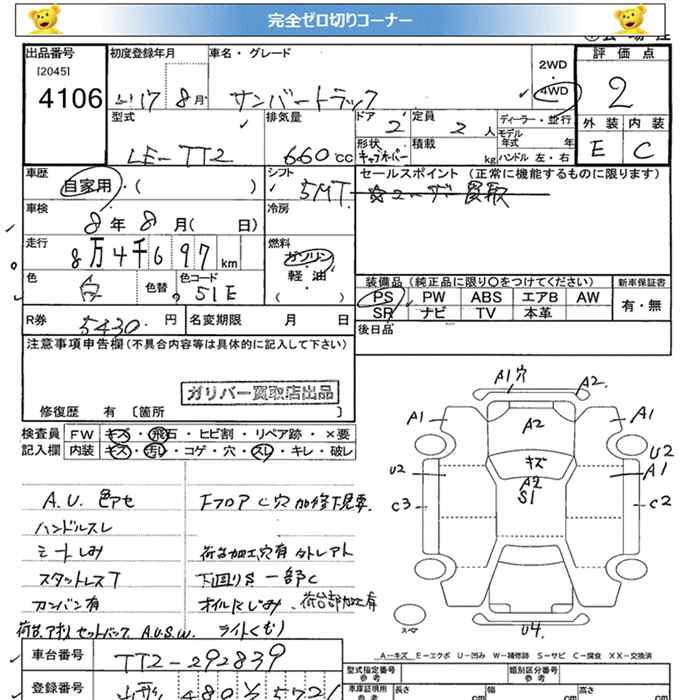 完全ゼロ切りコーナー
出品番号
[2045]
4106
初度登録年月
H17 8月
車名・グレード
サンバートラック
2WD
4WD
評価点
2
外装 内装
E C
型式
LE-TT2
排気量
660cc
ドア
2
定員
2人
ディーラー・並行
モデル年式 年
形状
キャブオーバー
積載
kg
ハンドル 左・右
車歴
自家用・( )
シフト
5MT
セールスポイント (正常に機能するものに限ります)
ユーザー買取
車検
8年8月( 日)
冷房
走行
8万4千697km
燃料
ガソリン
軽油
( )
色
白
色替
色コード
51E
装備品 (純正品に限り○をつけてください)
新車保証書
PS PW ABS エアB AW
SR ナビ TV 本革
有・無
R券
5430円
名変期限 月 日
後日品
注意事項申告欄(不具合内容等は具体的に記入して下さい)
ガリバー買取店出品
修復歴 有 〔箇所 〕
検査員 FW キズ・飛石・ヒビ割・リペア跡・×要
記入欄 内装 キズ・汚れ・コゲ・穴・スレ・キレ・破レ
A.U. 色アセ
ハンドルスレ
シートしみ
スタットレスT
カンバン有
荷台、アオリ セットバック A.U.S.W.
Fフロア C穴 加修下見要
荷台加工穴有 タトレアト
下回りS 一部C
オイルにじみ、荷台部加工有
ライトくもり
A1穴
A2
A1
A2
A1
キズ
A2
S1
U2
U2
A1
C3
C2
スペア
U4
A…キズ E…エクボ U…凹み W…補修跡 S…サビ C…腐食 XX…交換済
車台番号
TT2-292839
登録番号
480
型式指定番号
参考
類別区分番号
参考
車庫証明用
参考
長さ cm
幅 cm
高さ cm